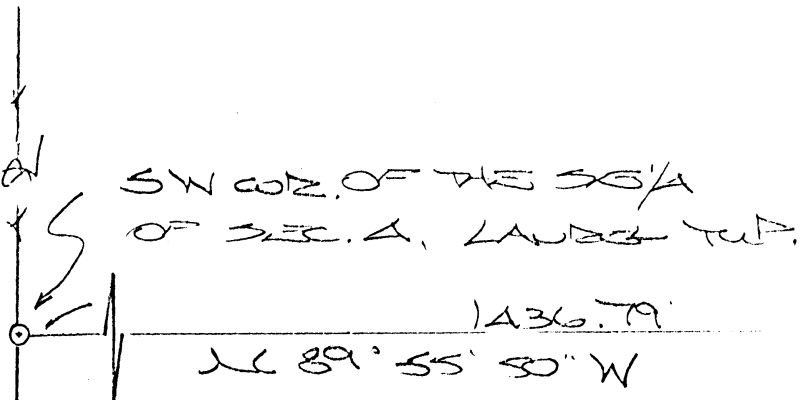 SW COR. OF THE SE 1/4
OF SEC. 4, LAUREL TWP.
1436.79'
N 89° 55' 50" W